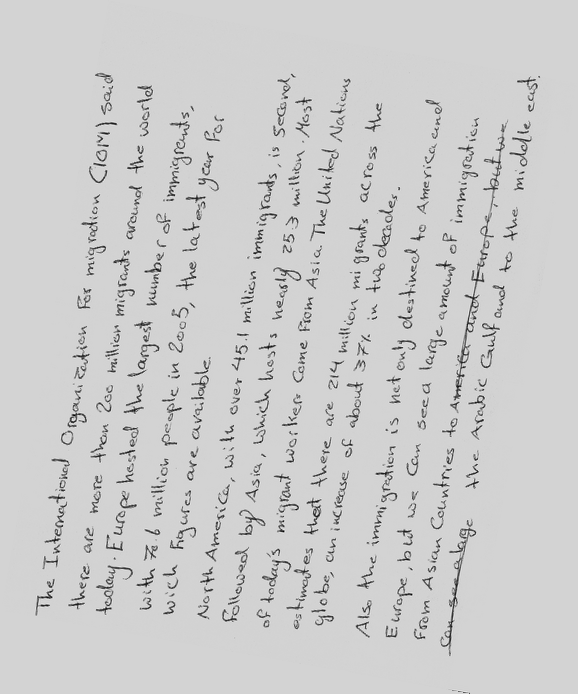 The International Organization For migration (IOM) said
there are more than 200 million migrants around the world
today. Europe hosted the largest number of immigrants,
with 70.6 million people in 2005, the latest year For
wich Figures are available.
North America, with over 45.1 million immigrants, is Second,
Followed by Asia, which hosts nearly 25.3 million. Most
of today's migrant workers Come From Asia. The United Nations
estimates that there are 214 million migrants across the
globe, an increase of about 37% in two decades.
Also the immigration is not only destined to America and
Europe, but we Can see a large amount of immigration
From Asian Countries to America and Europe, but we
Can see a large the Arabic Gulf and to the middle east.